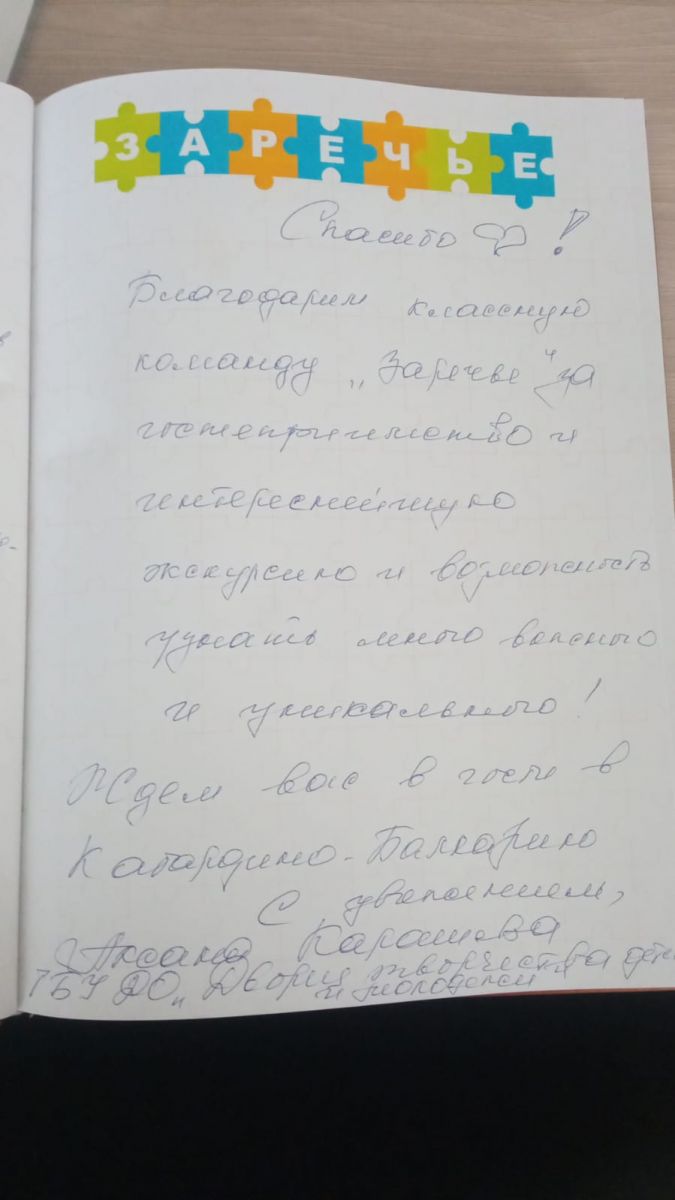 ЗАРЕЧЬЕ
Спасибо !
Благодарим классную
команду „Заречье“ за
гостеприимство и
интереснейшую
экскурсию и возможность
узнать много важного
и уникального!
Ждем вас в гости в
Кабардино-Балкарию
С уважением,
Аксана Карашева
ГБУ ДО „Дворец творчества дете
и молодежи